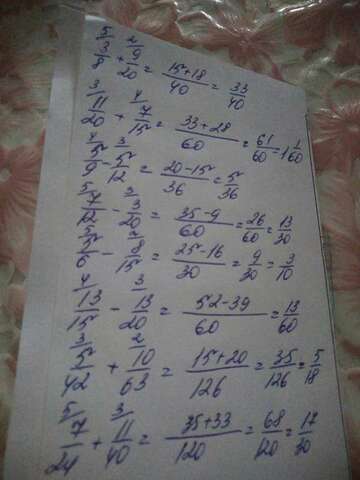 ⁵3/8 + ²9/20 = 15+18/40 = 33/40
³11/20 + ⁴7/15 = 33+28/60 = 61/60 = 1 1/60
⁴5/9 - ³5/12 = 20-15/36 = 5/36
⁵7/12 - ³3/20 = 35-9/60 = 26/60 = 13/30
⁵5/6 - ²8/15 = 25-16/30 = 9/30 = 3/10
⁴13/15 - ³13/20 = 52-39/60 = 13/60
³5/42 + ²10/63 = 15+20/126 = 35/126 = 5/18
⁵7/24 + ³11/40 = 35+33/120 = 68/120 = 17/30